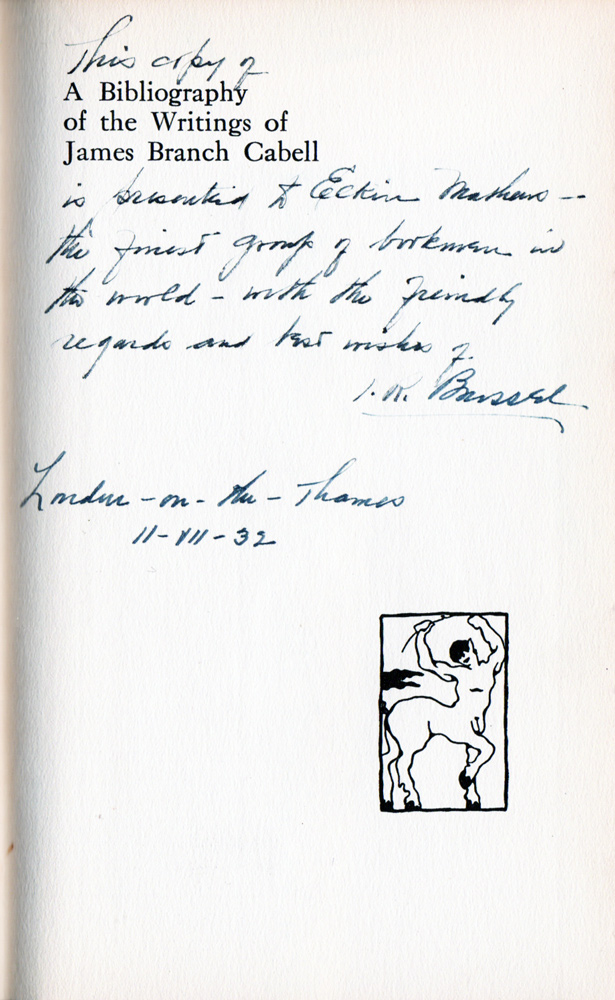 This copy of
A Bibliography
of the Writings of
James Branch Cabell
is presented to Eckin Mathews —
the finest group of bookmen in
the world – with the friendly
regards and best wishes of
I. R. Brussel
London – on – the – Thames
11 – VII – 32